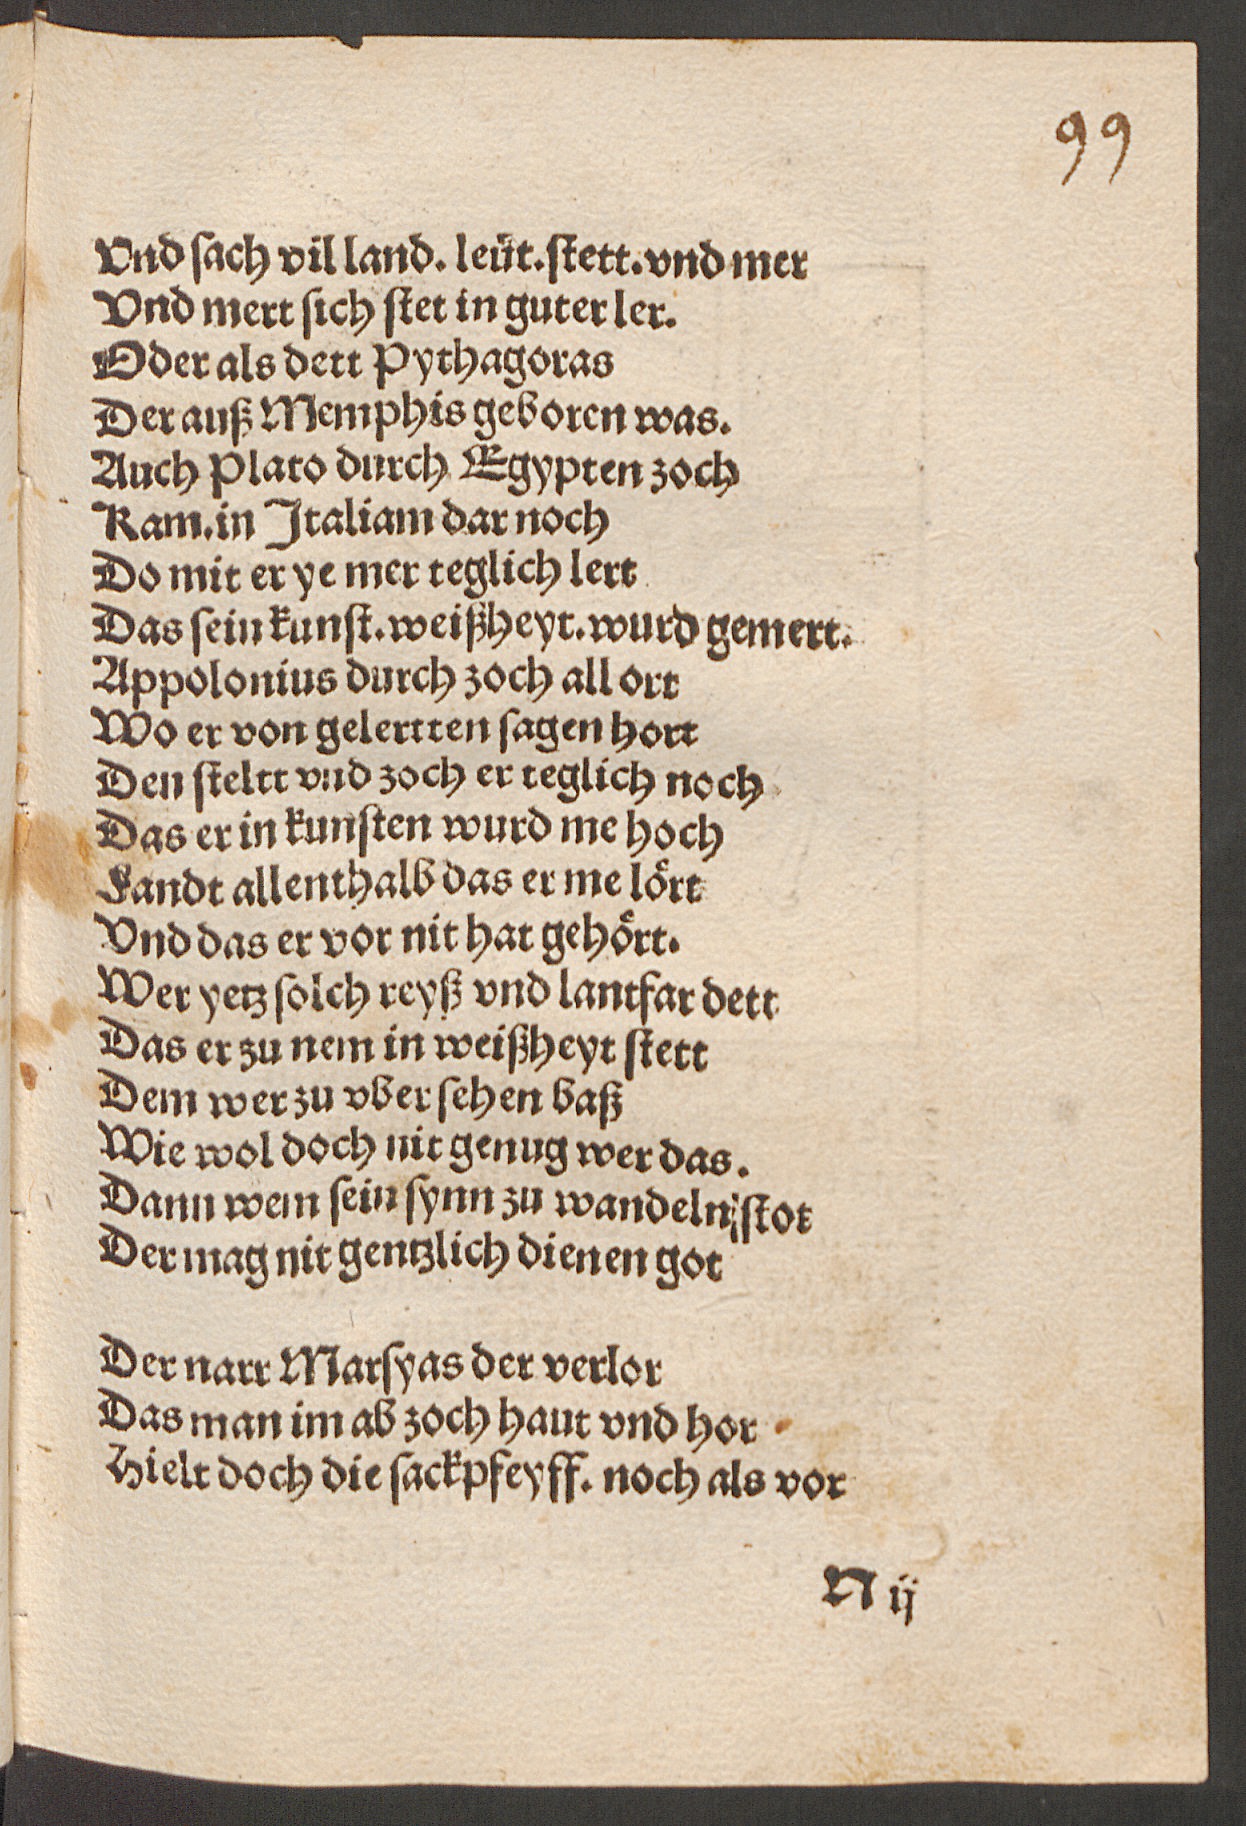 99
Vnd sach vil land. leüt. stett. vnd mer
Vnd mert sich stet in guter ler.
Oder als dett Pythagoras
Der auß Memphis geboren was.
Auch Plato durch Egypten zoch
Kam. in Italiam dar noch
Do mit er ye mer teglich lert
Das sein kunst. weißheyt. wurd gemert.
Appolonius durch zoch all ort
Wo er von gelertten sagen hort
Den steltt vnd zoch er teglich noch
Das er in kunsten wurd me hoch
Fandt allenthalb das er me loͤrt
Vnd das er vor nit hat gehoͤrt.
Wer yetz solch reyß vnd lantfar dett
Das er zu nem in weißheyt stett
Dem wer zu vber sehen baß
Wie wol doch nit genug wer das.
Dann wem sein synn zu wandeln stot
Der mag nit gentzlich dienen got
Der narr Marsyas der verlor
Das man im ab zoch haut vnd hor
Hielt doch die sackpfeyff. noch als vor
N ij